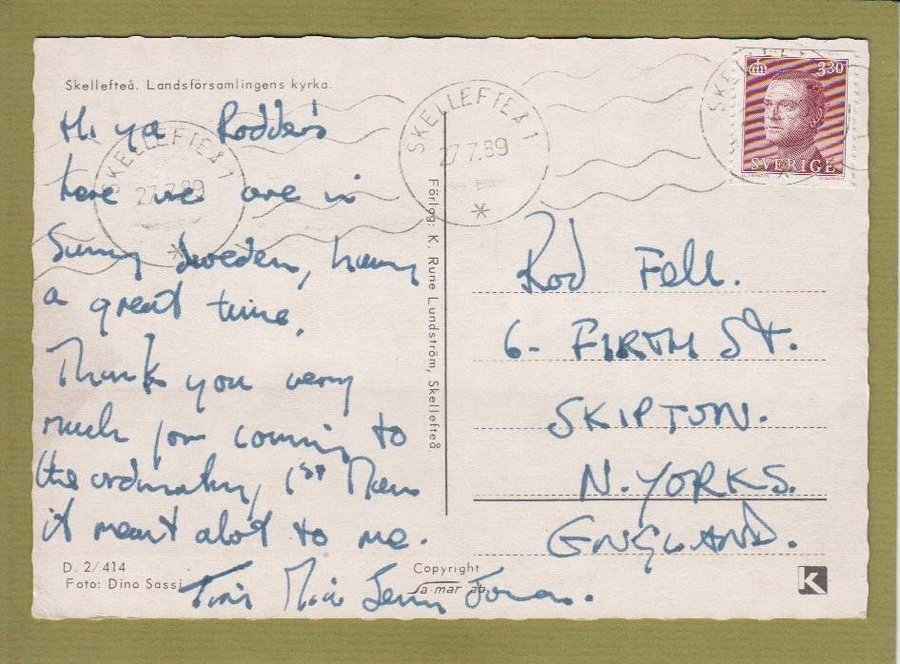 Skellefteå. Landsförsamlingens kyrka.
Hi ya Rodders
here we are in
Sunny Sweden, having
a great time.
Thank you very
much for coming to
the ordination, 1st Mass
it meant alot to me.
D. 2/414
Foto: Dino Sassi
Copyright
Sa-mar ab.
Förlag: K. Rune Lundström, Skellefteå.
SKELLEFTEÅ 1
27.7.89
SKELLEFTEÅ 1
27.7.89
SKELLEFTEÅ
330
SVERIGE
Rod Fell.
6- FIRTH St.
SKIPTON.
N. YORKS.
ENGLAND.
K